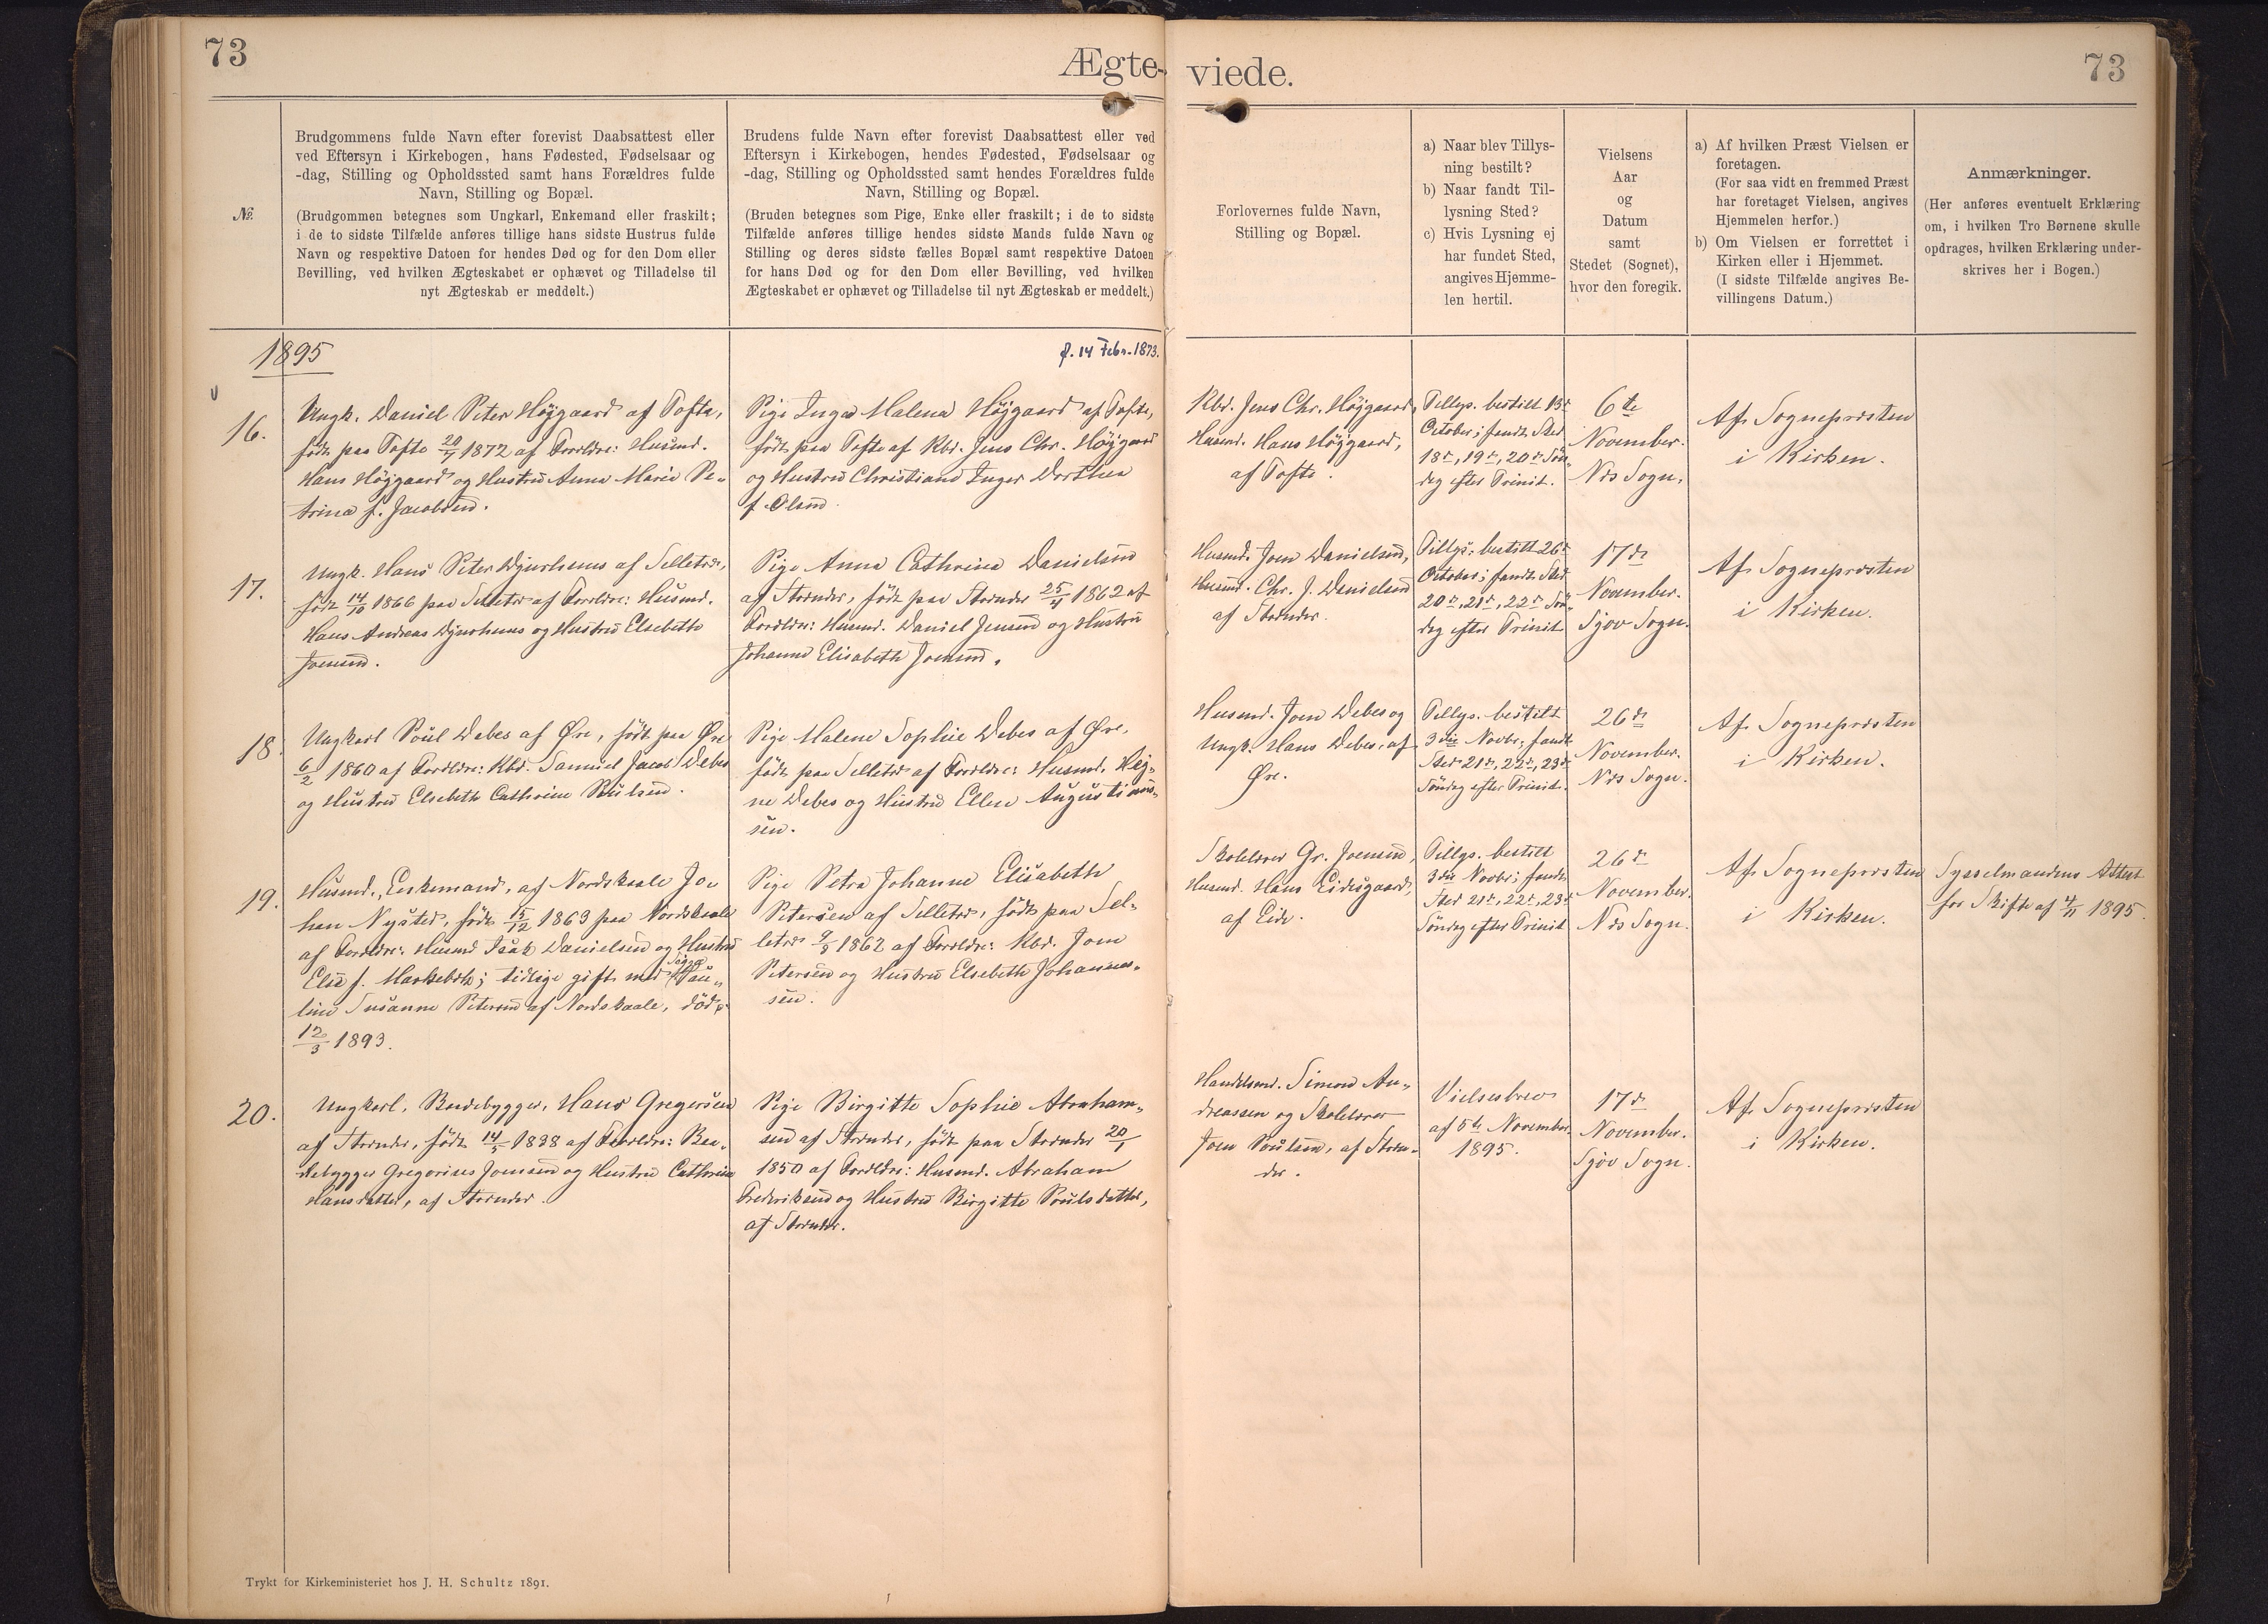 73
Ægte-
viede.
73
№
Brudgommens fulde Navn efter forevist Daabsattest eller
ved Eftersyn i Kirkebogen, hans Fødested, Fødselsaar og
-dag, Stilling og Opholdssted samt hans Forældres fulde
Navn, Stilling og Bopæl.
(Brudgommen betegnes som Ungkarl, Enkemand eller fraskilt;
i de to sidste Tilfælde anføres tillige hans sidste Hustrus fulde
Navn og respektive Datoen for hendes Død og for den Dom eller
Bevilling, ved hvilken Ægteskabet er ophævet og Tilladelse til
nyt Ægteskab er meddelt.)
Brudens fulde Navn efter forevist Daabsattest eller ved
Eftersyn i Kirkebogen, hendes Fødested, Fødselsaar og
-dag, Stilling og Opholdssted samt hendes Forældres fulde
Navn, Stilling og Bopæl.
(Bruden betegnes som Pige, Enke eller fraskilt; i de to sidste
Tilfælde anføres tillige hendes sidste Mands fulde Navn og
Stilling og deres sidste fælles Bopæl samt respektive Datoen
for hans Død og for den Dom eller Bevilling, ved hvilken
Ægteskabet er ophævet og Tilladelse til nyt Ægteskab er meddelt.)
Forlovernes fulde Navn,
Stilling og Bopæl.
a) Naar blev Tillys-
ning bestilt?
b) Naar fandt Til-
lysning Sted?
c) Hvis Lysning ej
har fundet Sted,
angives Hjemme-
len hertil.
Vielsens
Aar
og
Datum
samt
Stedet (Sognet),
hvor den foregik.
a) Af hvilken Præst Vielsen er
foretagen.
(For saa vidt en fremmed Præst
har foretaget Vielsen, angives
Hjemmelen herfor.)
b) Om Vielsen er forrettet i
Kirken eller i Hjemmet.
(I sidste Tilfælde angives Be-
villingens Datum.)
Anmærkninger.
(Her anføres eventuelt Erklæring
om, i hvilken Tro Børnene skulle
opdrages, hvilken Erklæring under-
skrives her i Bogen.)
1895
16.
Ungk. Daniel Peter Højgaard af Tofte,
født paa Tofte 20/7 1872 af Forældre: Husmd.
Hans Højgaard og Hustru Anna Marie Pe-
trina f. Jacobsen.
f. 14 Febr. 1873.
Pige Inga Malena Højgaard af Tofte,
født paa Tofte af Kbd. Jens Chr. Højgaard
og Hustru Christiane Inger Dorthea
f. Olsen
Kbd. Jens Chr. Højgaard,
Husmd. Hans Højgaard,
af Tofte.
Tillys. bestilt 13de
October; fandt Sted
18de, 19de, 20de Søn-
dag efter Trinit.
6te
November.
Næs Sogn.
Af Sognepræsten
i Kirken.
17.
Ungk. Hans Peter Djurhuus af Selletræ,
født 14/10 1866 paa Selletræ af Forældre: Husmd.
Hans Andreas Djurhuus og Hustru Elsebeth
Joensen.
Pige Anna Cathrina Danielsen
af Strænder, født paa Strænder 25/4 1862 af
Forældre: Husmd. Daniel Jensen og Hustru
Johanne Elisabeth Joensen.
Husmd. Joen Danielsen,
Husmd. Chr. J. Danielsen
af Strænder.
Tillys. bestilt 26de
October; fandt Sted
20de, 21de, 22de Søn-
dag efter Trinit
17de
November.
Sjov Sogn.
Af Sognepræsten
i Kirken.
18.
Ungkarl Poul Debes af Øre, født paa Øre
6/2 1860 af Forældre: Kbd. Samuel Jacob Debes
og Hustru Elsebeth Cathrine Poulsen.
Pige Malene Sophie Debes af Øre,
født paa Selletræ af Forældre: Husmd. Hej-
ne Debes og Hustru Ellen Augustinus-
sen.
Husmd. Joen Debes og
Ungk. Hans Debes, af
Øre.
Tillys. bestilt
3die Novbr; fandt
Sted 21de, 22de, 23de
Søndag efter Trinit.
26de
November.
Næs Sogn.
Af Sognepræsten
i Kirken.
19.
Husmd., Enkemand, af Nordskaale Jo-
han Nysted, født 15/12 1863 paa Nordskaale
af Forældre: Husmd Isak Danielsen og Hustru
Else f. Morkebek; tidlige gift med Pige Pau-
line Susanne Petersen af Nordskaale, død
12/3 1893.
Pige Petra Johanne Elisabeth
Petersen af Selletræ, født paa Sel-
letræ 9/8 1862 af Forældre: Kbd. Joen
Petersen og Hustru Elsebeth Johannes-
sen.
Skolelærer Gr. Joensen,
Husmd. Hans Eidisgaard,
af Eide.
Tillys. bestilt
3die Novbr; fandt
Sted 21de, 22de, 23de
Søndag efter Trinit
26de
November.
Næs Sogn.
Af Sognepræsten
i Kirken.
Sysselmandens Attest
for Skifte af 4/11 1895.
20.
Ungkarl, Baadebygger, Hans Gregersen
af Strænder, født 14/5 1838 af Forældre: Baa-
debygger Gregorius Joensen og Hustru Cathrine
Hansdatter, af Strænder.
Pige Birgitte Sophie Abraham-
sen af Strænder, født paa Strænder 20/1
1850 af Forældre: Husmd. Abraham
Frederiksen og Hustru Birgitte Poulsdatter,
af Strænder.
Handelsmd. Simon An-
dreassen og Skolelærer
Joen Poulsen, af Stræn-
der.
Vielsesbrev
af 5te November
1895.
17de
November.
Sjov Sogn.
Af Sognepræsten
i Kirken.
Trykt for Kirkeministeriet hos J. H. Schultz 1891.